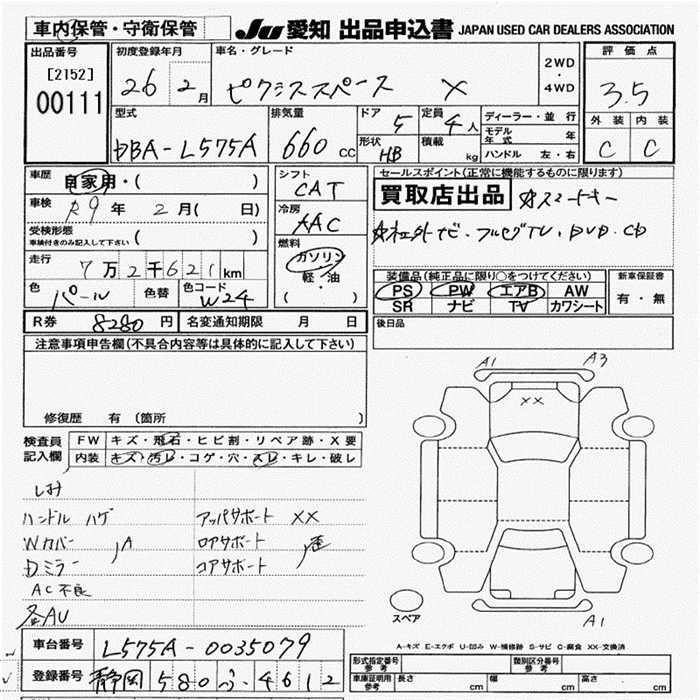 車内保管・守衛保管
JU 愛知 出品申込書 JAPAN USED CAR DEALERS ASSOCIATION
出品番号
[2152]
00111
初度登録年月
26 2月
車名・グレード
ピクシススペース X
2WD
・
4WD
評価点
3.5
外装 内装
C C
型式
DBA-L575A
排気量
660 cc
ドア 5
形状 HB
定員 4人
積載 kg
ディーラー・並行
モデル年式 年
ハンドル 左・右
車歴 自家用・( )
車検 R9年 2月( 日)
受検形態
車検付きのみ記入して下さい ( )
走行 7万2千621km
色 パール 色替 色コード W24
シフト
CAT
冷房
AAC
燃料
ガソリン
軽・油
( )
セールスポイント(正常に機能するものに限ります)
買取店出品 スマートキー
社外ナビ・フルセグTV、DVD、CD
装備品(純正品に限り○をつけてください)
PS PW エアB AW
SR ナビ TV カワシート
新車保証書
有・無
R券 8280円 名変通知期限 月 日
後日品
注意事項申告欄(不具合内容等は具体的に記入して下さい)
修復歴 有 (箇所 )
検査員記入欄
FW キズ・飛石・ヒビ割・リペア跡・X要
内装 キズ・汚レ・コゲ・穴・スレ・キレ・破レ
シミ
ハンドル ハゲ アッパサポート XX
Wカバー ロアサポート
Dミラー A コアサポート
AC不良
各AU
A1 A3
XX
スペア
A1
車台番号 L575A-0035079
登録番号 静岡 580 ふ 4612
A-キズ E-エクボ U-凹み W-補修跡 S-サビ C-腐食 XX-交換済
形式指定番号 参考 類別区分番号 参考
車庫証明用 参考 長さ cm 幅 cm 高さ cm